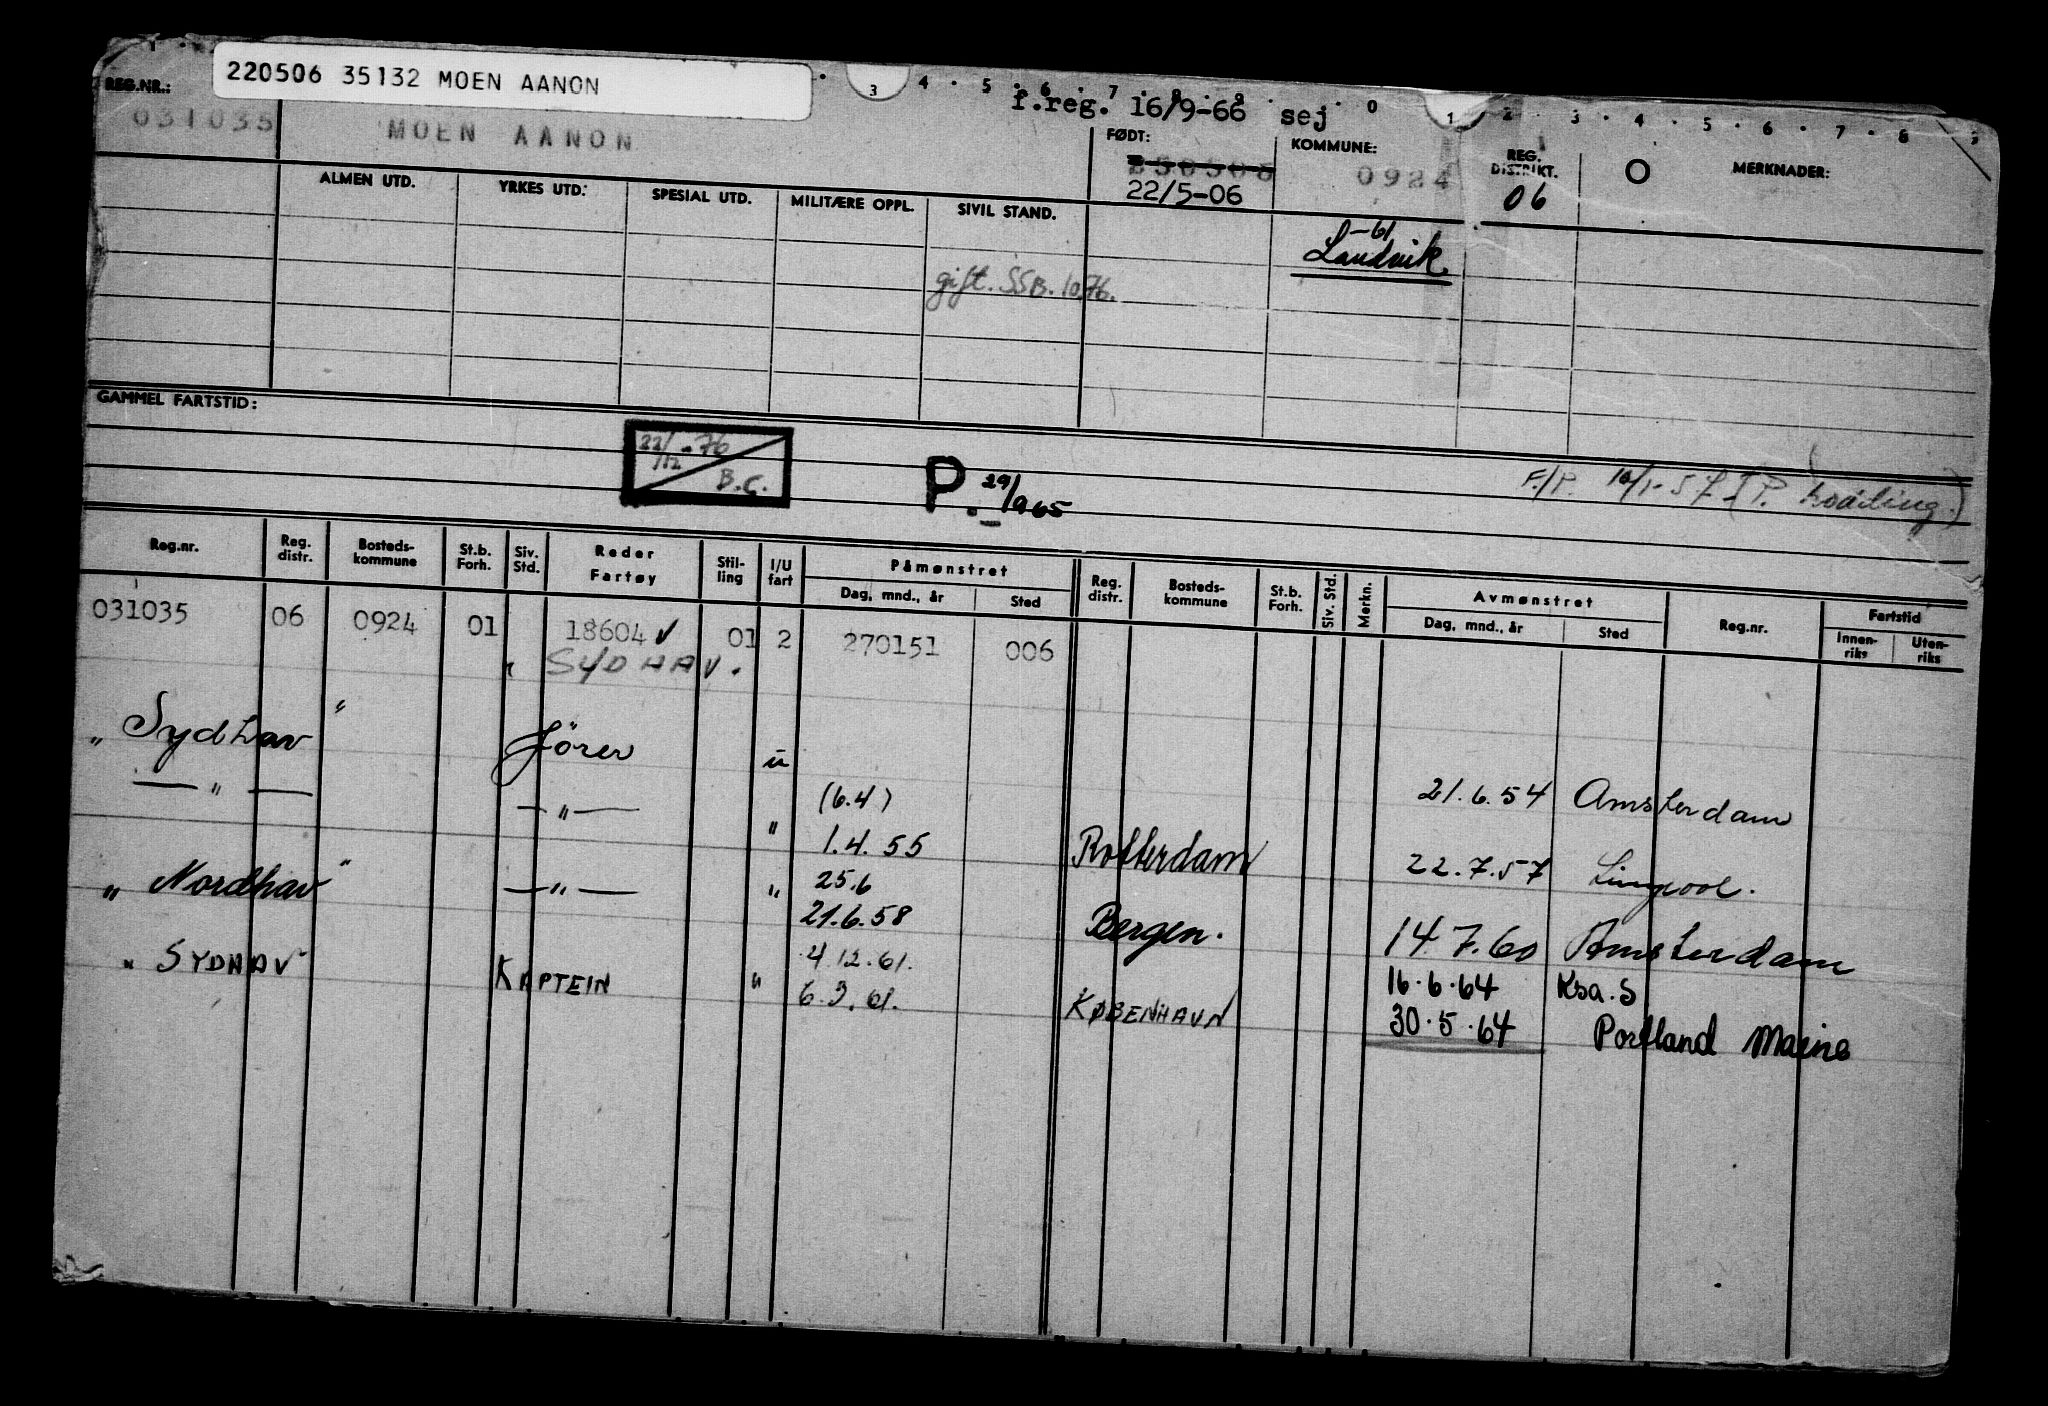 220506 35132 MOEN AANON
REG.NR.:
3 4 5 6 7 8 9 0 1 2 3 4 5 6 7 8 9
f.reg. 16/9-66 sej
031035 MOEN AANON
FØDT: KOMMUNE: REG. DISTRIKT. O MERKNADER:
22/5-06 0924 06
ALMEN UTD. YRKES UTD. SPESIAL UTD. MILITÆRE OPPL. SIVIL STAND.
-61
Landvik
gift. SSB. 10.76.
GAMMEL FARTSTID:
22/12-76
B.C.
P. 29/9 65
F./P. 10/1-57 (P.
Reg.nr. Reg. distr. Bosteds-kommune St.b. Forh. Siv. Std. Reder Fartøy Stil-ling I/U fart Påmønstret Dag, mnd., år Sted Reg. distr. Bosteds-kommune St.b. Forh. Siv. Std. Merkn. Avmønstret Dag, mnd., år Sted Reg.nr. Fartstid Innen-riks Uten-riks
031035 06 0924 01 18604 ✓ 01 2 270151 006
SYDHAV.
"Sydhav" fører u 21.6.54 Amsterdam
— " — — " — " (6.4)
1.4.55 Rotterdam 22.7.57 Liverpool.
"Nordhav" — " — " 25.6
21.6.58 Bergen. 14.7.60 Amsterdam
"SYDHAV" KAPTEIN " 4.12.61. 16.6.64 Ksa.S
6.3.61. KØBENHAVN 30.5.64 Portland Maine